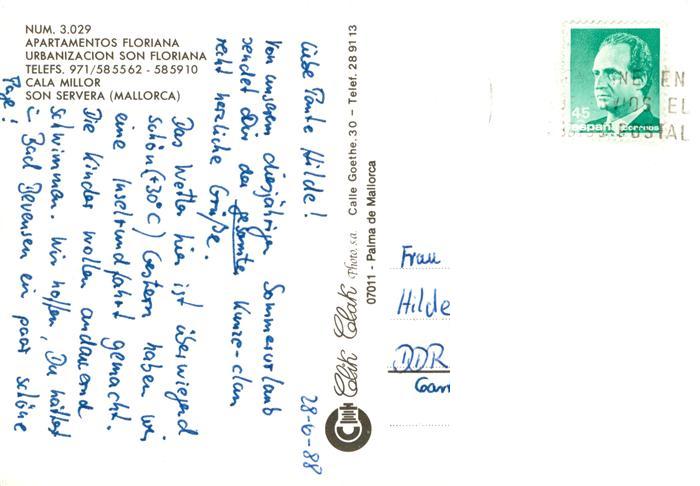 NUM. 3.029
APARTAMENTOS FLORIANA
URBANIZACION SON FLORIANA
TELEFS. 971/585562 - 585910
CALA MILLOR
SON SERVERA (MALLORCA)
28-6-88
Liebe Tante Hilde!
Von unserem diesjährigen Sommerurlaub
sendet Dir der gesamte Kunze-clan
recht herzliche Grüße.
Das Wetter hier ist überwiegend
schön (+30°C) Gestern haben wir
eine Inselrundfahrt gemacht.
Die Kinder wollen andauernd
schwimmen. Wir hoffen, Du hattest
in Bad Bevensen ein paar schöne
Tage!
Clik Clak Photo, s.a. Calle Goethe, 30 – Telef. 28 91 13
07011 - Palma de Mallorca
45
españa correos
EN
EL
POSTAL
Frau
Hilde
DDR